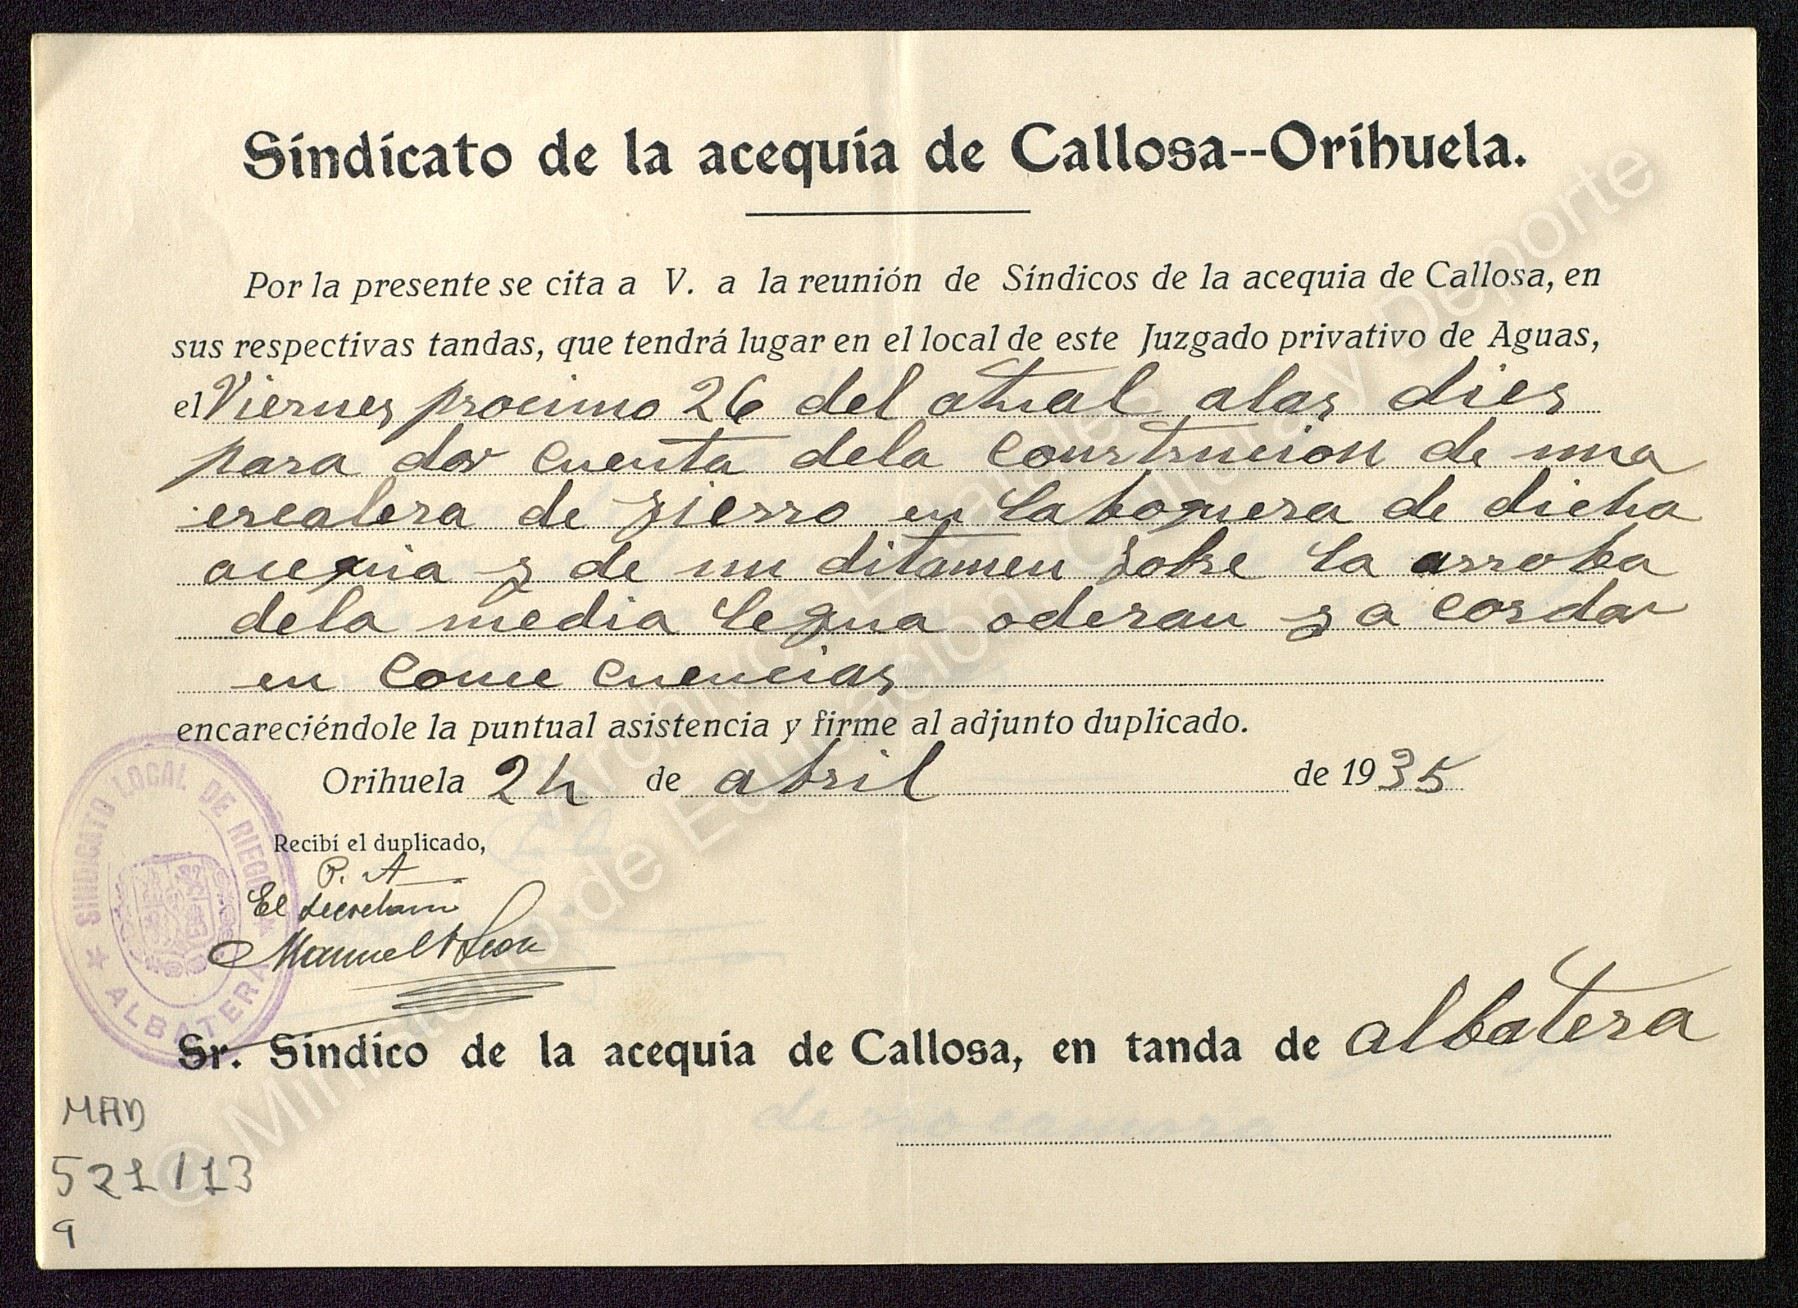 Sindicato de la acequia de Callosa--Orihuela.
Por la presente se cita a V. a la reunión de Síndicos de la acequia de Callosa, en
sus respectivas tandas, que tendrá lugar en el local de este Juzgado privativo de Aguas,
el Viernes procimo 26 del atual alas dies
para dar cuenta dela construcion de una
escalera de zierro en la boquera de dicha
acequia y de un ditamen sobre la arroba
dela media legua oderan y a cordar
en conce cuencias
encareciéndole la puntual asistencia y firme al adjunto duplicado.
Orihuela 24 de abril de 1935
Recibí el duplicado,
P. A
El secretario
Manuel Leon
SINDICATO LOCAL DE RIEGOS
ALBATERA
Sr. Síndico de la acequia de Callosa, en tanda de albatera
MAD
521/13
9
© Ministerio de Educación, Cultura y Deporte
Archivos Estatales